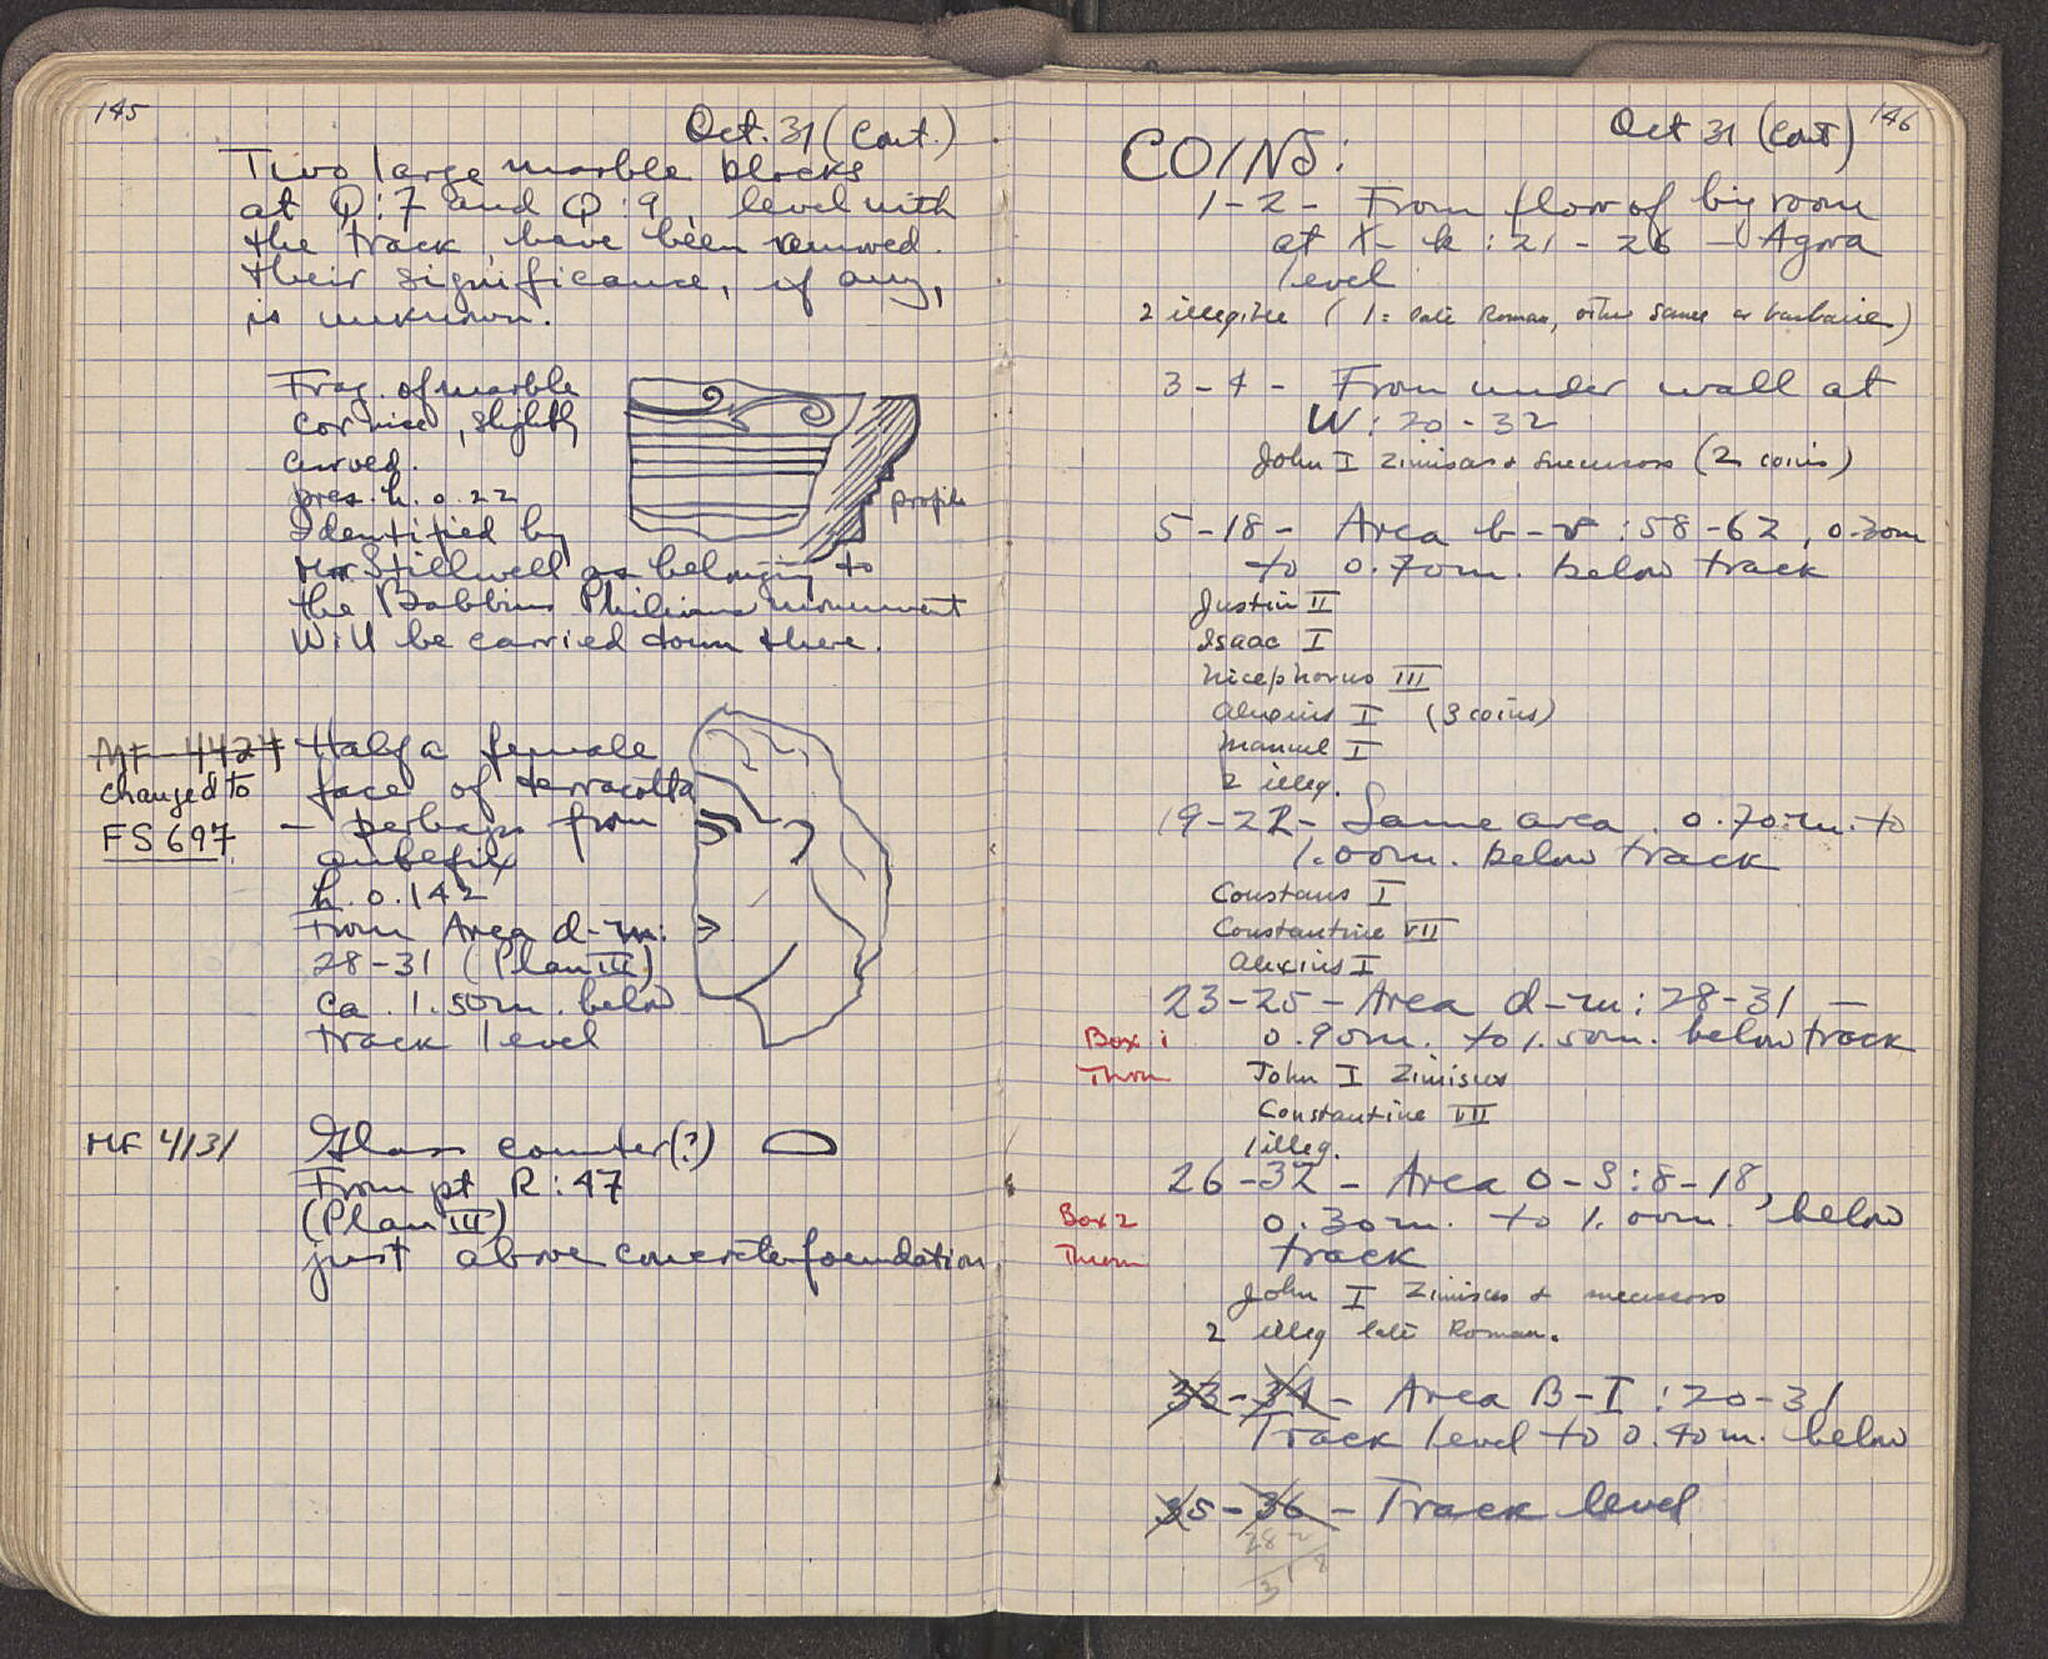 145
Oct. 31 (Cont.)
Two large marble blocks
at Q:7 and Q:9, level with
the track, have been removed.
their significance, if any,
is unknown.
Frag. of marble
cornice, slightly
curved.
pres. h. 0.22
Identified by
Mr Stillwell as belonging to
the Babbius Philinus monument
Will be carried down there.
profile
MF 4424
changed to
FS 697
Half a female
face of terracotta
- perhaps from
antefix
h. 0.142
From Area d-m:
28-31 (Plan III)
ca. 1.50m. below
track level
MF 4131
Glass counter(?)
From pt R:47
(Plan III)
just above concrete foundation
Oct 31 (Cont) 146
COINS:
1-2- From floor of big room
at X-k:21-26 - Agora
level
2 illegible (1= late Roman, other same or barbaric)
3-4- From under wall at
W:20-32
John I Zimisces + successors (2 coins)
5-18- Area b-r:58-62, 0.30m
to 0.70m. below track
Justin II
Isaac I
Nicephorus III
Alexius I (3 coins)
Manuel I
2 illeg.
19-22- Same area. 0.70m. to
1.00m. below track
Constans I
Constantine VII
Alexius I
23-25- Area d-m:28-31 -
Box 1 0.90m. to 1.50m. below track
John I Zimisces
Constantine VII
1 illeg.
26-32- Area O-S:8-18,
Box 2 0.30m. to 1.00m. below
track
John I Zimisces + successors
2 illeg late Roman.
33-34- Area B-I:20-31
Track level to 0.40m. below
35-36- Track level